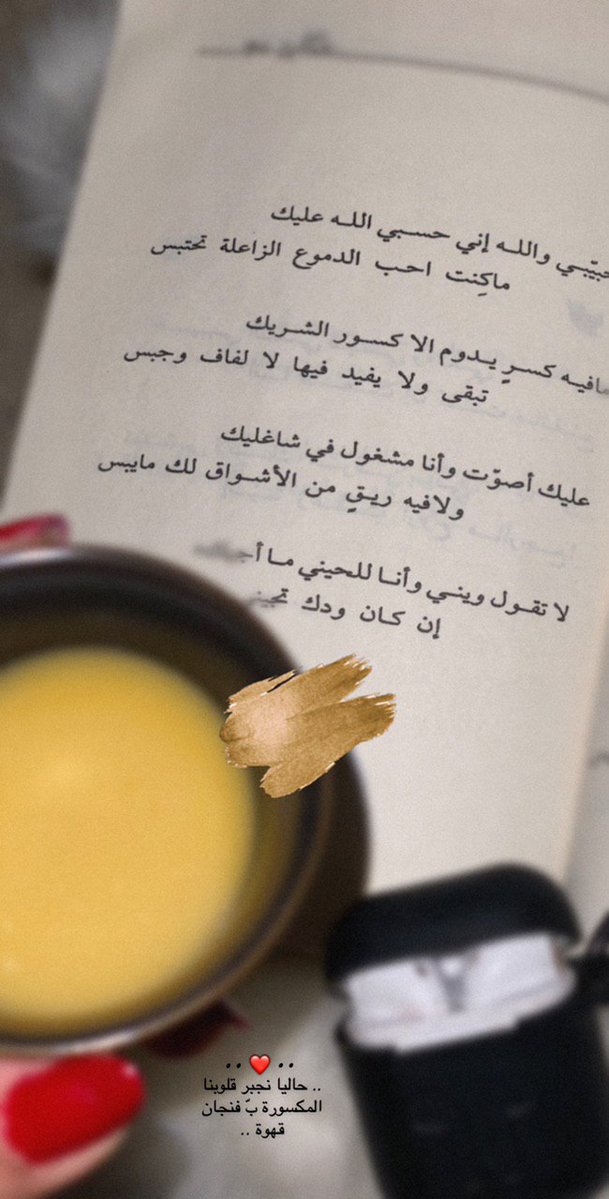 والله إني حسبي الله عليك
ماكِنت احب الدموع الزاعلة تحتبس
مافيه كسرٍ يدوم الا كسور الشريك
تبقى ولا يفيد فيها لا لفاف وجبس
عليك أصوّت وأنا مشغول في شاغليك
ولافيه ريقٍ من الأشواق لك مايبس
لا تقول ويني وأنا للحيني ما
إن كان ودك
.. ❤️ ..
.. حاليا نجبر قلوبنا
المكسورة بّ فنجان
قهوة ..